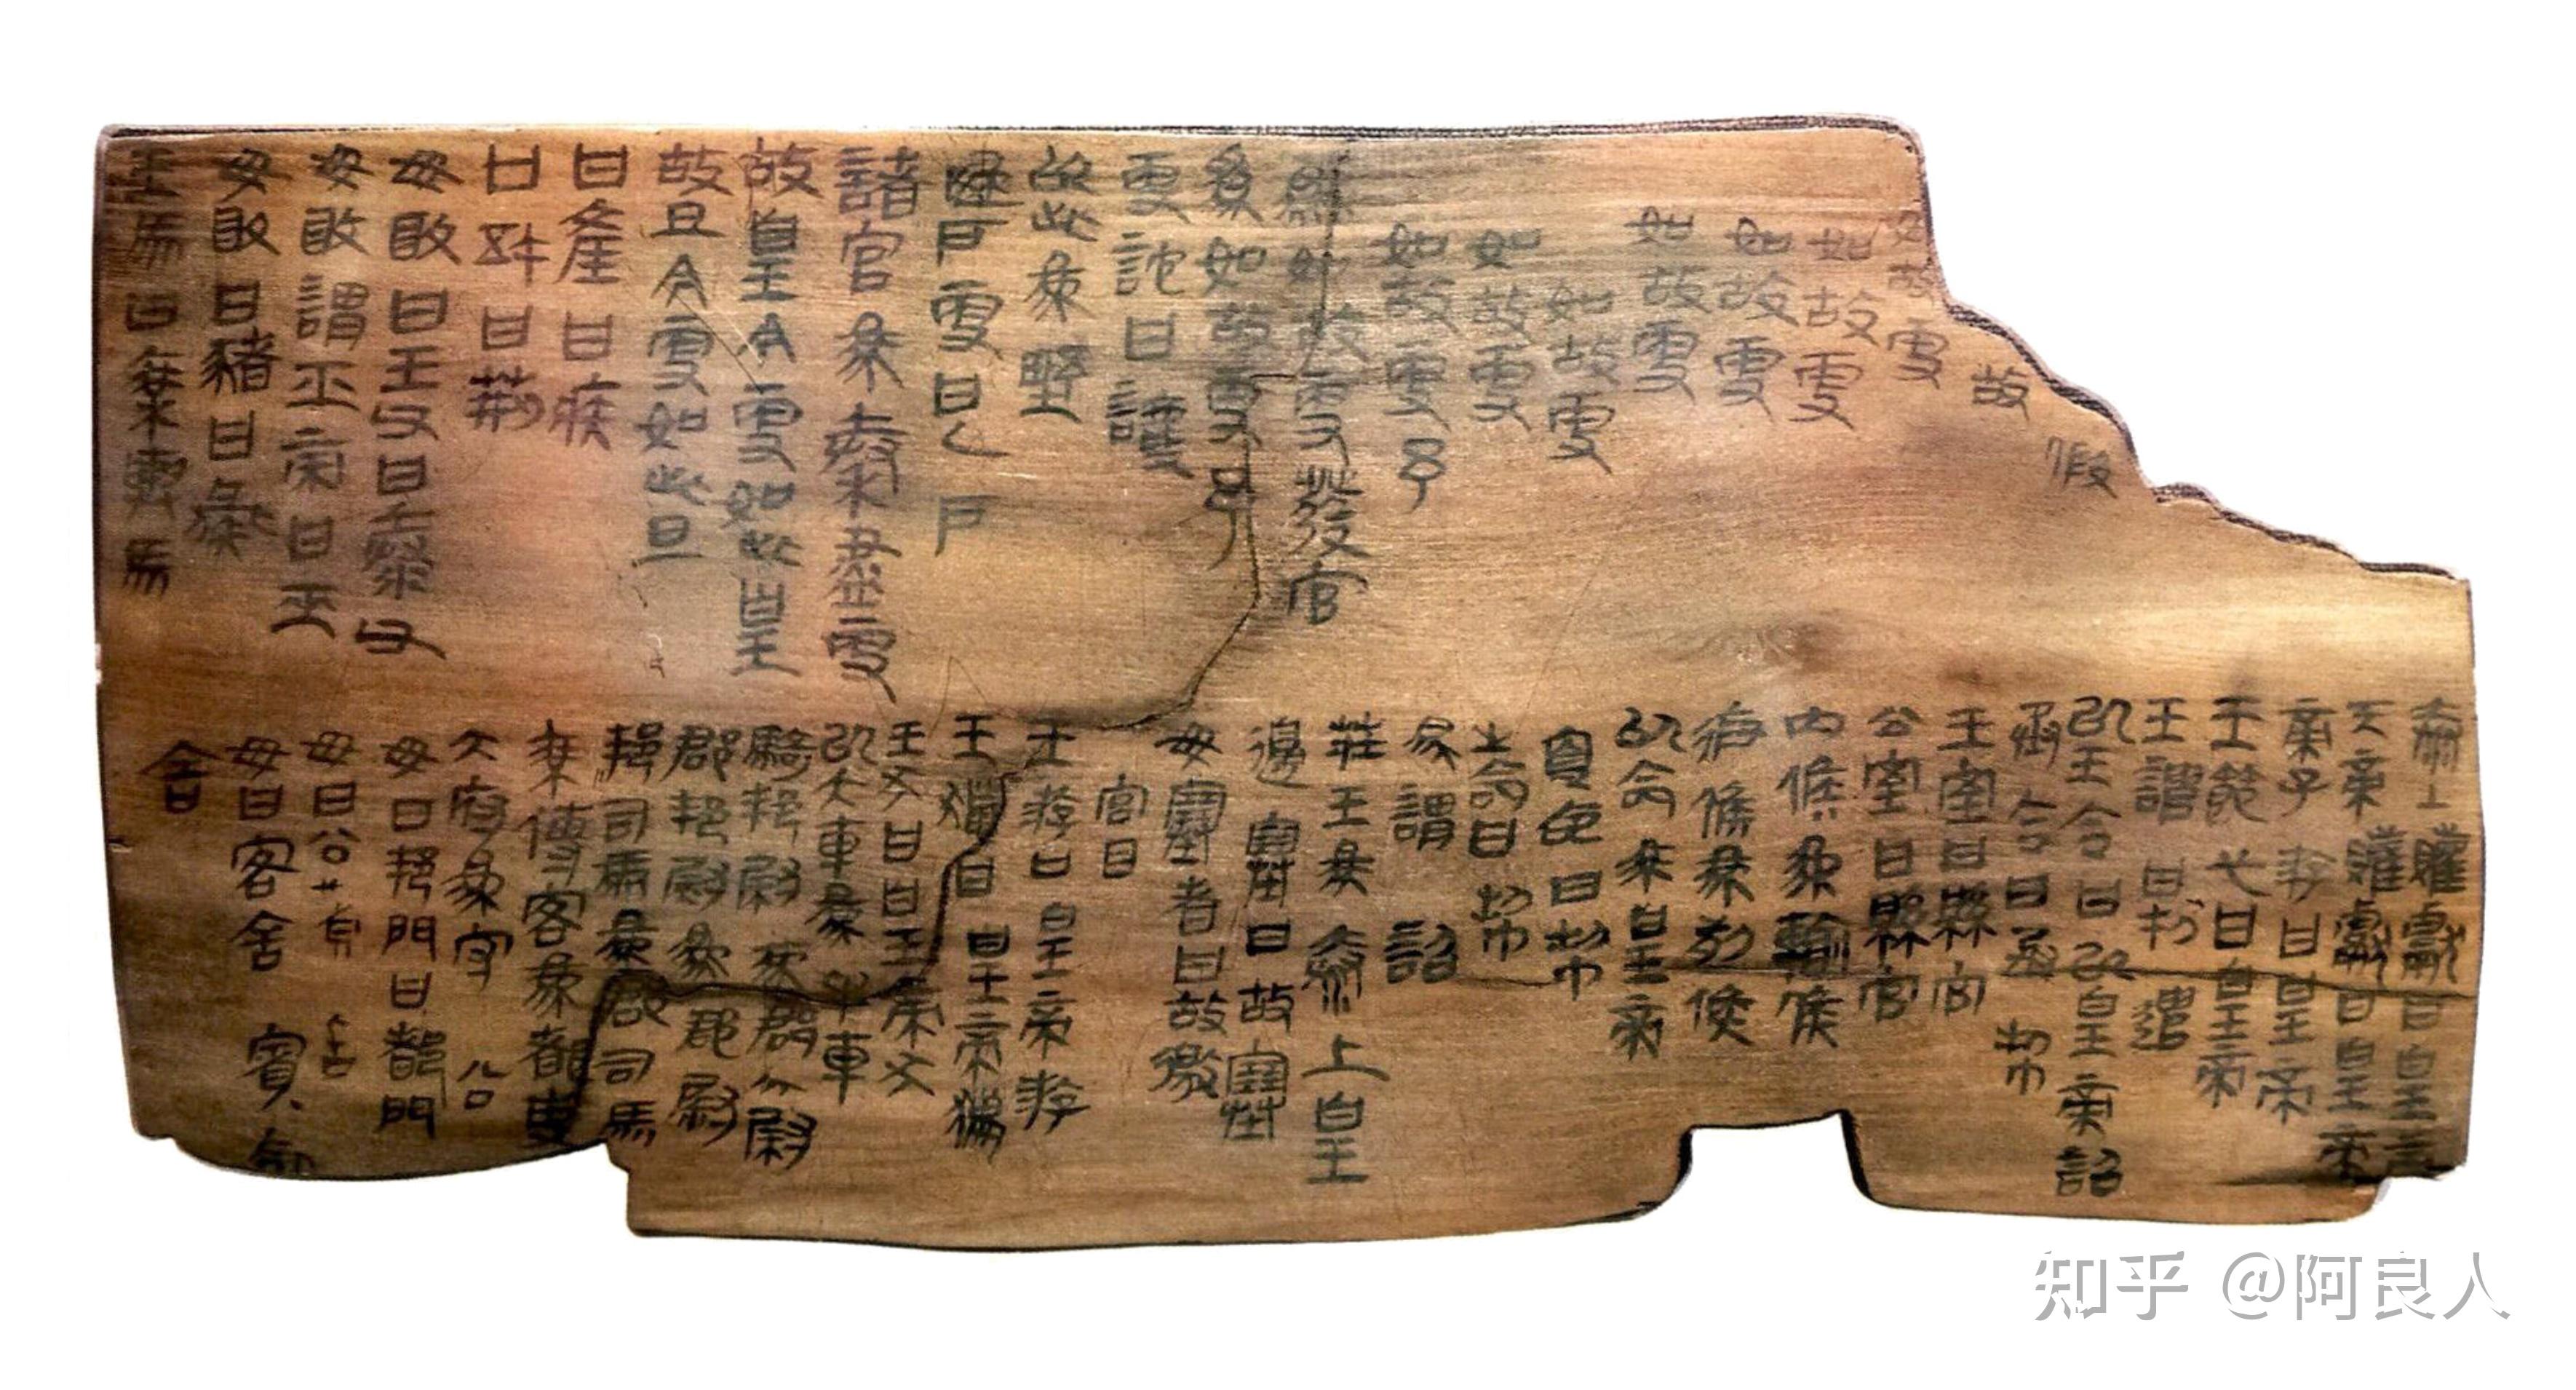 假
故
如故更
如故更
如故更
如故更
如故更
如故更
如故更予
如故更發官
為如故更予
更詑曰謾
以此為野
更曰乙戶
諸官為秦盡更
故皇今更如此皇
故旦今更如此旦
曰產曰族
曰荊
毋敢曰王父曰泰父
毋敢謂巫帝曰巫
毋敢曰豬曰彘
王馬曰乘輿馬
泰上觀獻曰皇帝
天帝觀獻曰皇帝
帝子游曰皇帝
王節弋曰皇帝
王譴曰制譴
以王令曰以皇帝詔
承令曰承制
王室曰縣官
公室曰縣官
內侯為輪侯
徹侯為列侯
以命為皇帝
受命曰制
出命曰制
為謂詔
莊王為泰上皇
邊塞曰故塞
毋塞者曰故徼
宮曰
王游曰皇帝游
王獵曰皇帝獵
王犬曰皇帝犬
以大車為牛車
騎邦尉為騎尉
郡邦尉為郡尉
邦司馬為郡司馬
乘傳客為都吏
大府為守公
毋曰邦門曰都門
毋曰公舍
毋曰客舍賓飤
舍
知乎 @阿良人